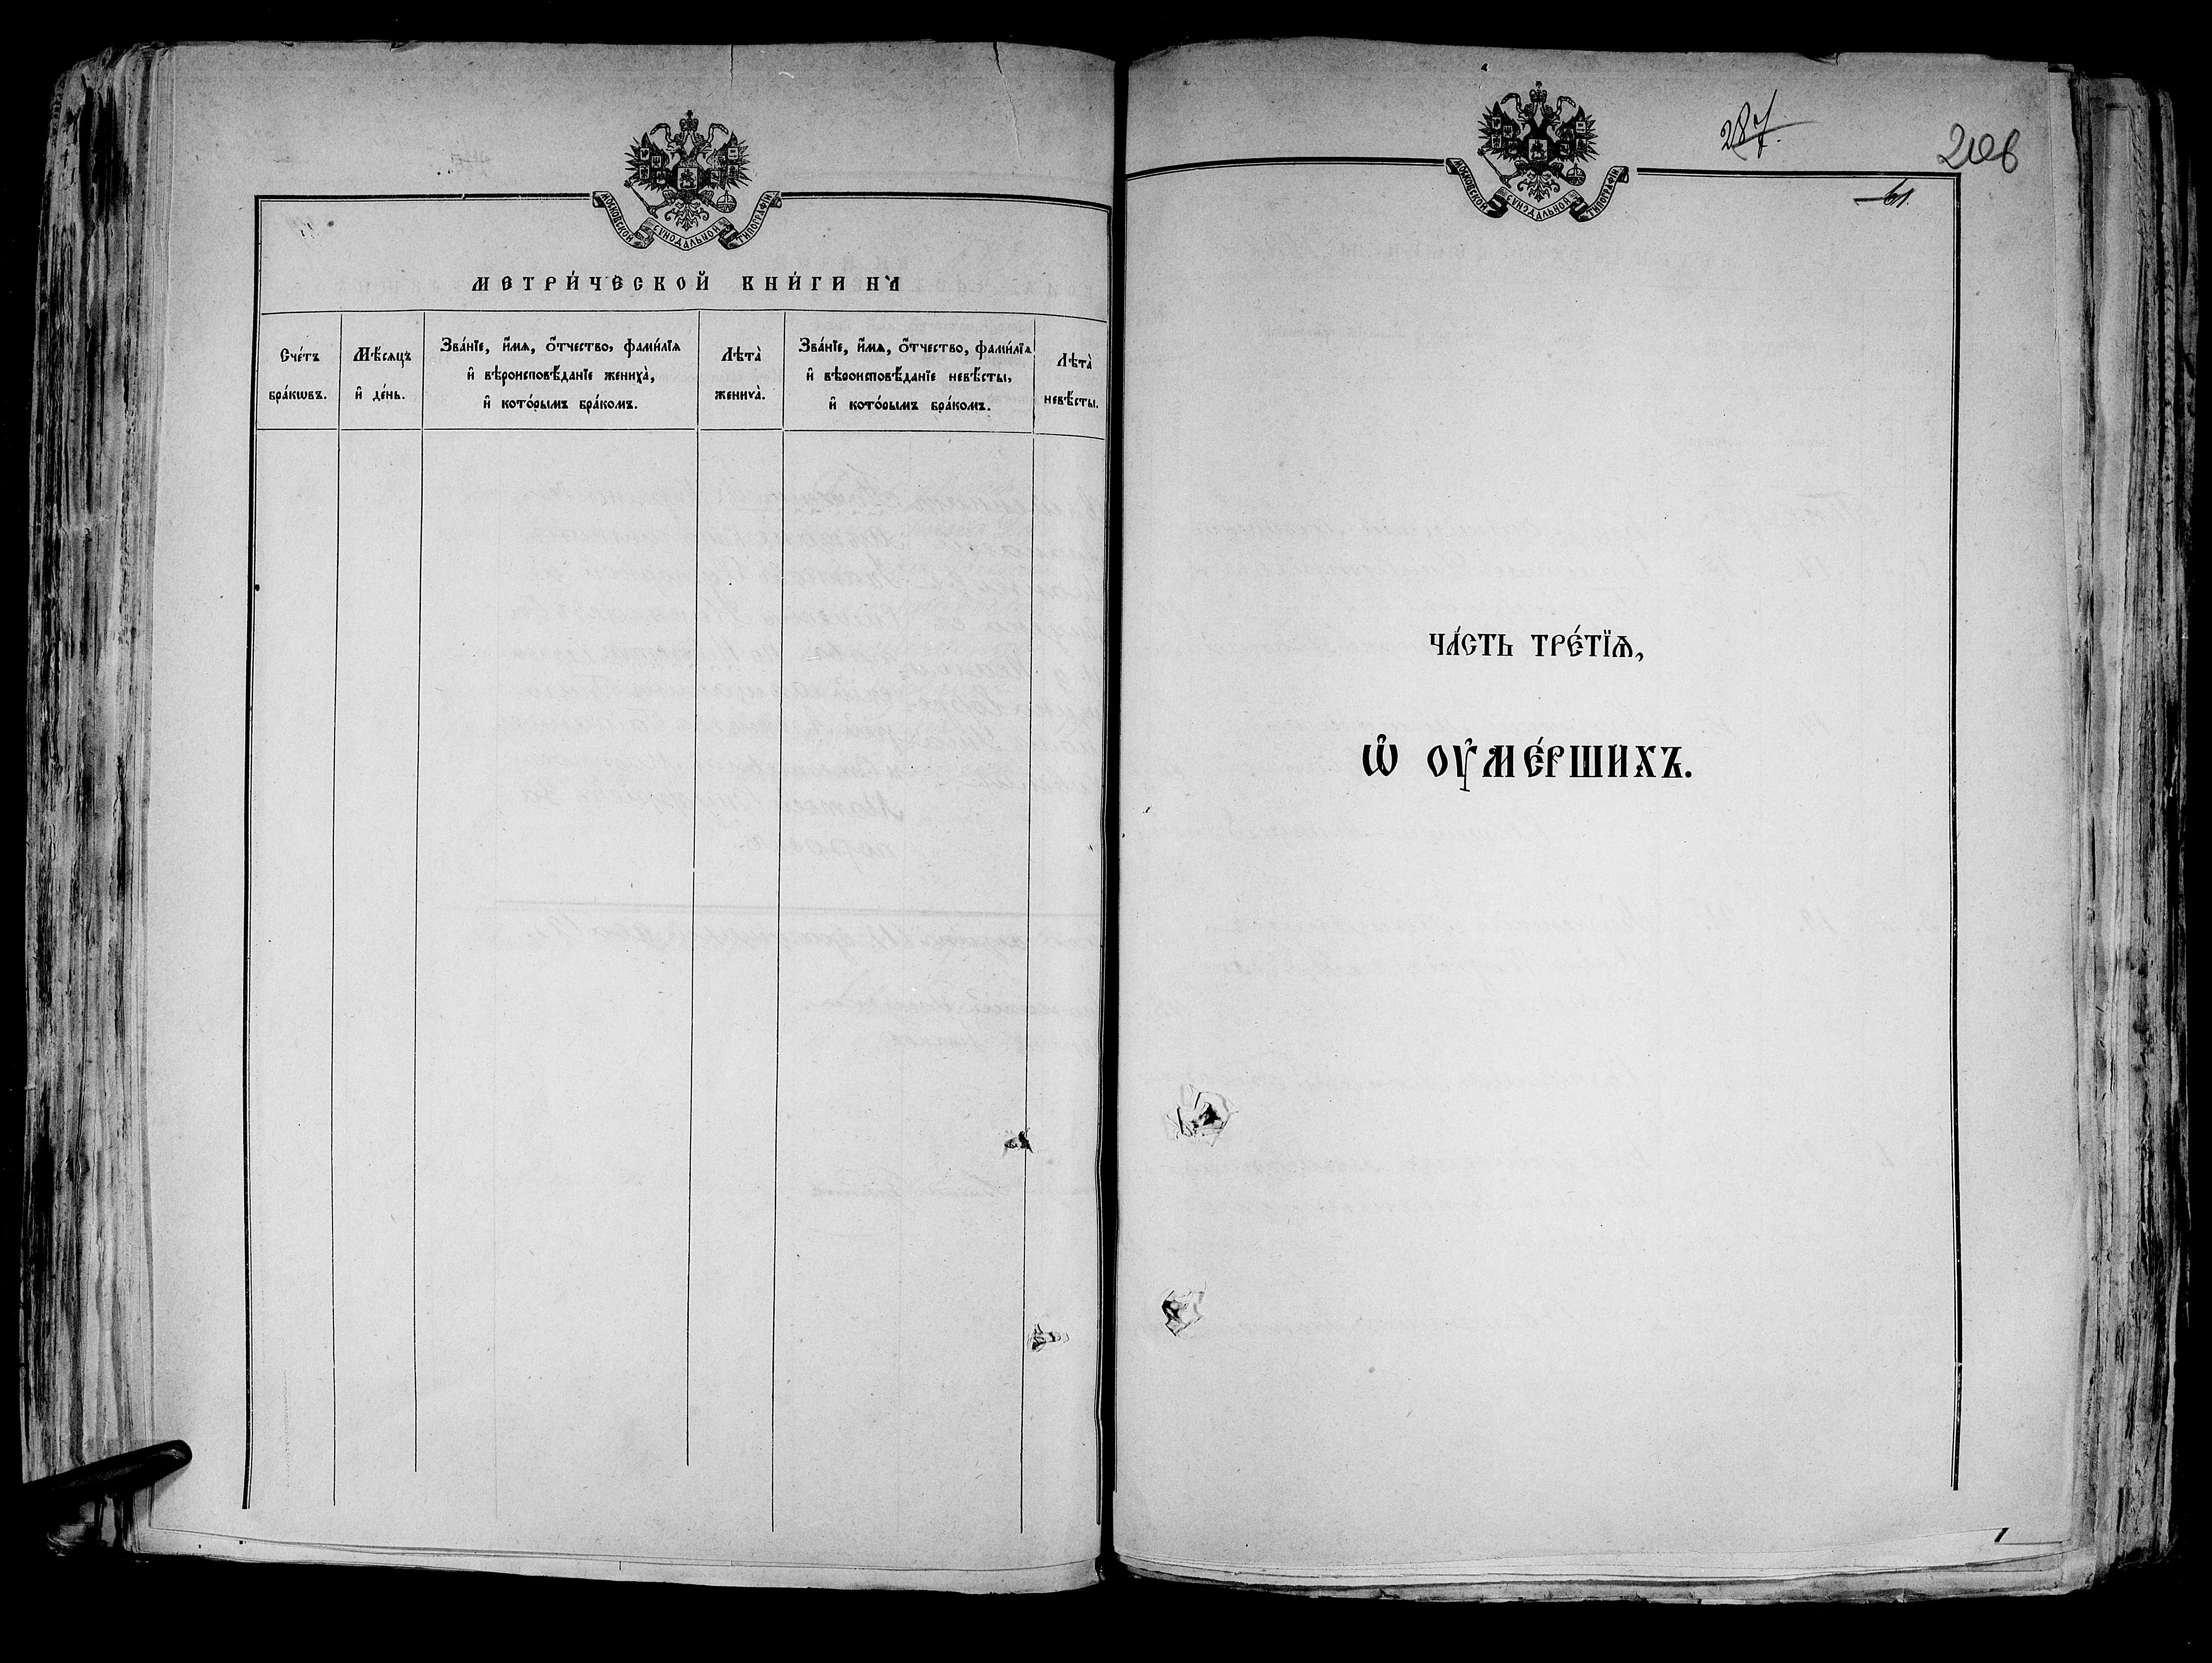 МОСКОВСКОЙ СѴНОДАЛЬНОЙ ТИПОГРАФІИ
МЕТРИ́ЧЕСКОЙ КНИ́ГИ НА̀
Сче́тъ
бра́кѡвъ.
Мѣ́сяцъ
и҆ де́нь.
Зва́нїе, и҆́мѧ, ѻ҆́тчество, фами́лїѧ
и҆ вѣроисповѣ́данїе жениха̀,
и҆ кото́рымъ бра́комъ.
Лѣта̀
жениха̀.
Зва́нїе, и҆́мѧ, ѻ҆́тчество, фами́лїѧ
и҆ вѣроисповѣ́данїе невѣ́сты,
и҆ кото́рымъ бра́комъ.
Лѣта̀
невѣ́сты.
МОСКОВСКОЙ СѴНОДАЛЬНОЙ ТИПОГРАФІИ
287.
61.
ЧА́СТЬ ТРЕ́ТЇѦ,
Ѡ҆ ОУ҆МЕ́РШИХЪ.